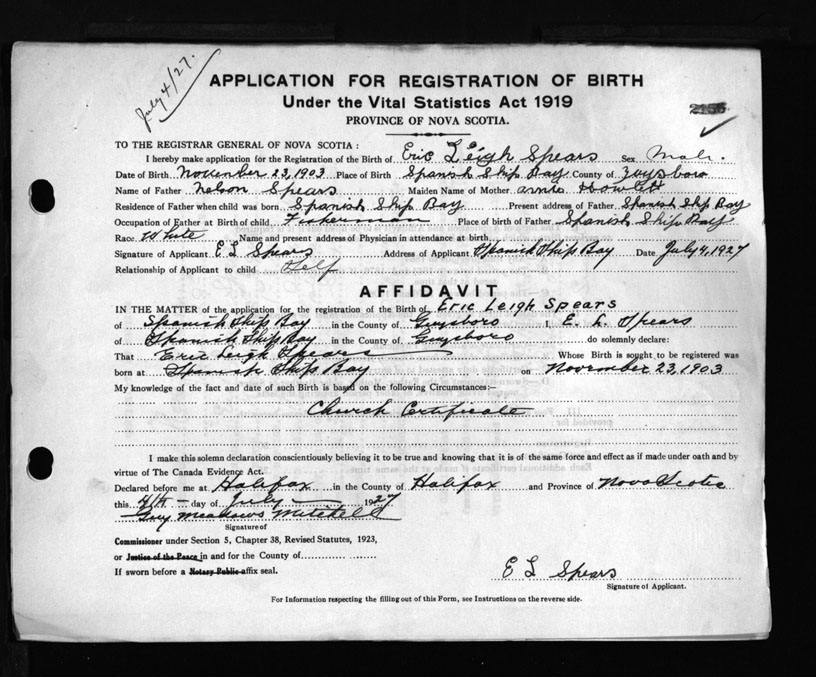 July 4/27.
APPLICATION FOR REGISTRATION OF BIRTH
Under the Vital Statistics Act 1919
PROVINCE OF NOVA SCOTIA.
TO THE REGISTRAR GENERAL OF NOVA SCOTIA :
I hereby make application for the Registration of the Birth of Eric Leigh Spears Sex Male.
Date of Birth November 23, 1903 Place of Birth Spanish Ship Bay County of Guysboro
Name of Father Nelson Spears Maiden Name of Mother Annie Howlett
Residence of Father when child was born Spanish Ship Bay Present address of Father Spanish Ship Bay
Occupation of Father at Birth of child Fisherman Place of birth of Father Spanish Ship Bay
Race White Name and present address of Physician in attendance at birth
Signature of Applicant E L Spears Address of Applicant Spanish Ship Bay Date July 4, 1927
Relationship of Applicant to child Self
AFFIDAVIT
IN THE MATTER of the application for the registration of the Birth of Eric Leigh Spears
of Spanish Ship Bay in the County of Guysboro I, E. L. Spears
of Spanish Ship Bay in the County of Guysboro do solemnly declare:
That Eric Leigh Spears Whose Birth is sought to be registered was
born at Spanish Ship Bay on November 23, 1903
My knowledge of the fact and date of such Birth is based on the following Circumstances:—
Church Certificate
I make this solemn declaration conscientiously believing it to be true and knowing that it is of the same force and effect as if made under oath and by
virtue of The Canada Evidence Act.
Declared before me at Halifax in the County of Halifax and Province of Nova Scotia
this 4th day of July 1927
Guy Meadows Mitchell
Signature of
Commissioner under Section 5, Chapter 38, Revised Statutes, 1923,
or Justice of the Peace in and for the County of
If sworn before a Notary Public affix seal.
E L Spears
Signature of Applicant.
For Information respecting the filling out of this Form, see Instructions on the reverse side.